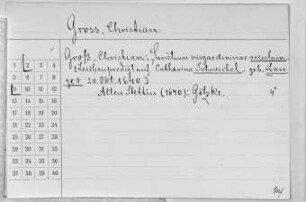 Gross, Christian
Groß, Christian: Sanctum virgae divinae osculum.
[Leichenpredigt auf Catharina Schwichel, geb. Lan
get 20. Okt. 1640.]
Alten Stettin (1640): Götzke. 4°
1 2 3 4
5 6 7 8
9 10 11 12
13 14 15 16
17 18 19 20
21 22 23 24
25 26 27 28
29 30 31 32
33 34 35 36
37 38 39 40